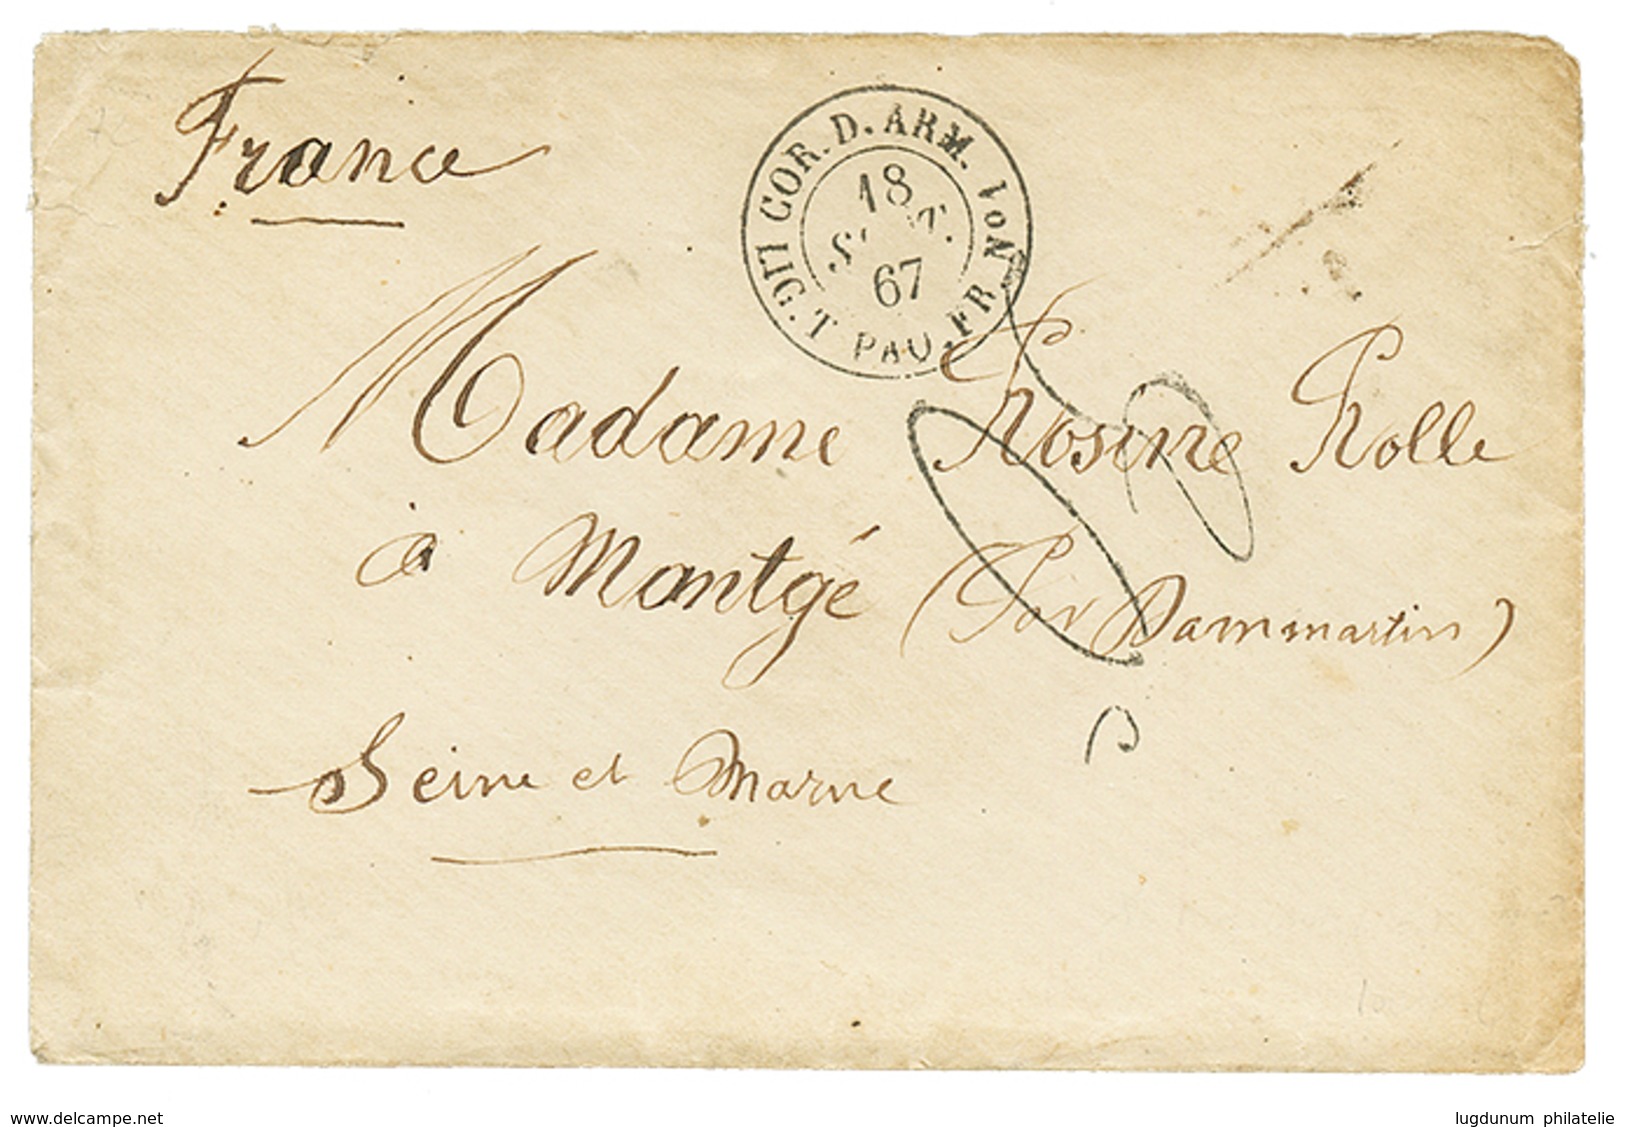 France
LIG. T COR. D. ARM. PAQ. FR. No 1
18
SEPT.
67
Madame Rosine Rolle
à Montgé (Par Dammartin)
Seine et Marne
www.delcampe.net
lugdunum philatelie